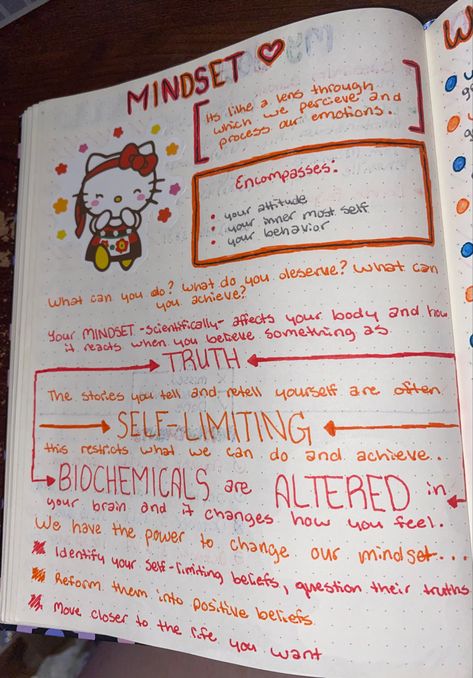 MINDSET
Its like a lens through
which we percieve and
process our emotions.
Encompasses:
• your attitude
• your inner most self
• your behavior
What can you do? What do you deserve? What can
you achieve?
Your MINDSET -scientifically- affects your body and how
it reacts when you believe something as
TRUTH
The stories you tell and retell yourself are often
SELF-LIMITING
this restricts what we can do and achieve..
BIOCHEMICALS are ALTERED in
your brain and it changes how you feel.
We have the power to change our mindset...
Identify your self-limiting beliefs, question their truths
Reform them into positive beliefs
Move closer to the life you want